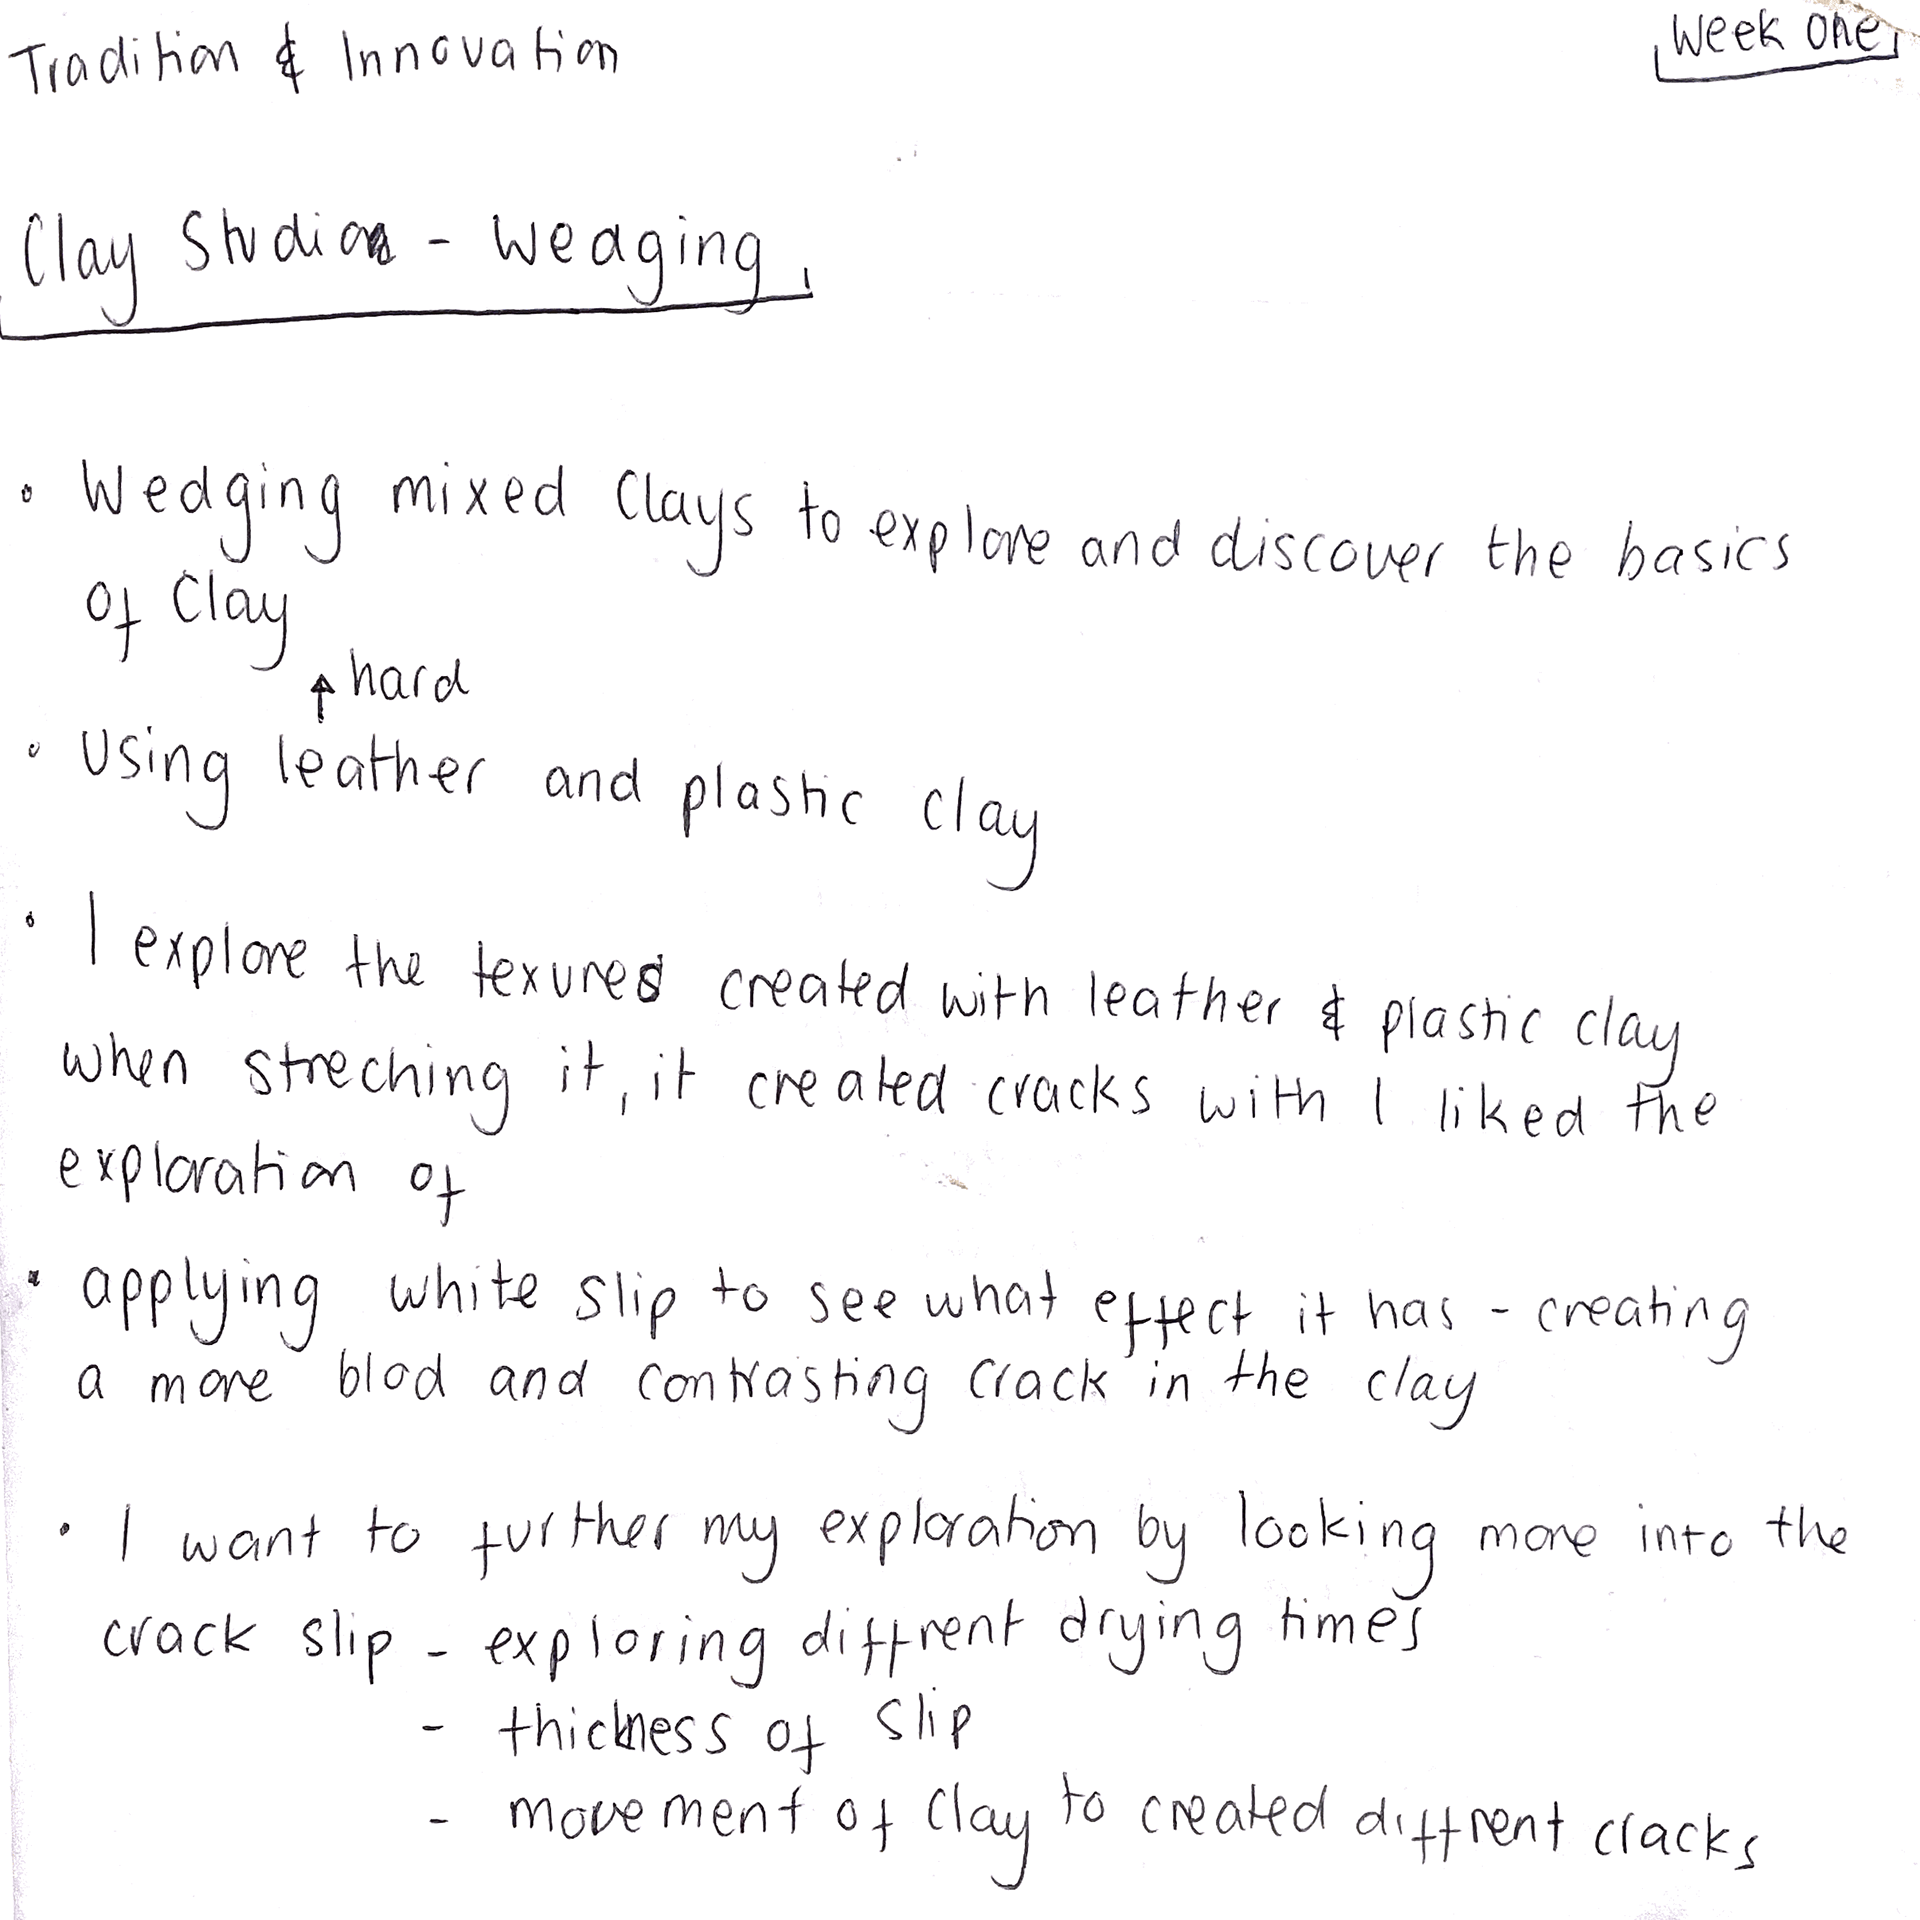 Tradition & Innovation
Week One
Clay Studio - Wedging
• Wedging mixed Clays to explore and discover the basics
of Clay
↑ hard
• Using leather and plastic clay
• I explore the texures created with leather & plastic clay
when streching it, it created cracks with I liked the
exploration of
• applying white slip to see what effect it has - creating
a more blod and contrasting crack in the clay
• I want to further my exploration by looking more into the
crack slip - exploring diffrent drying times
- thickness of slip
- movement of Clay to created diffrent cracks